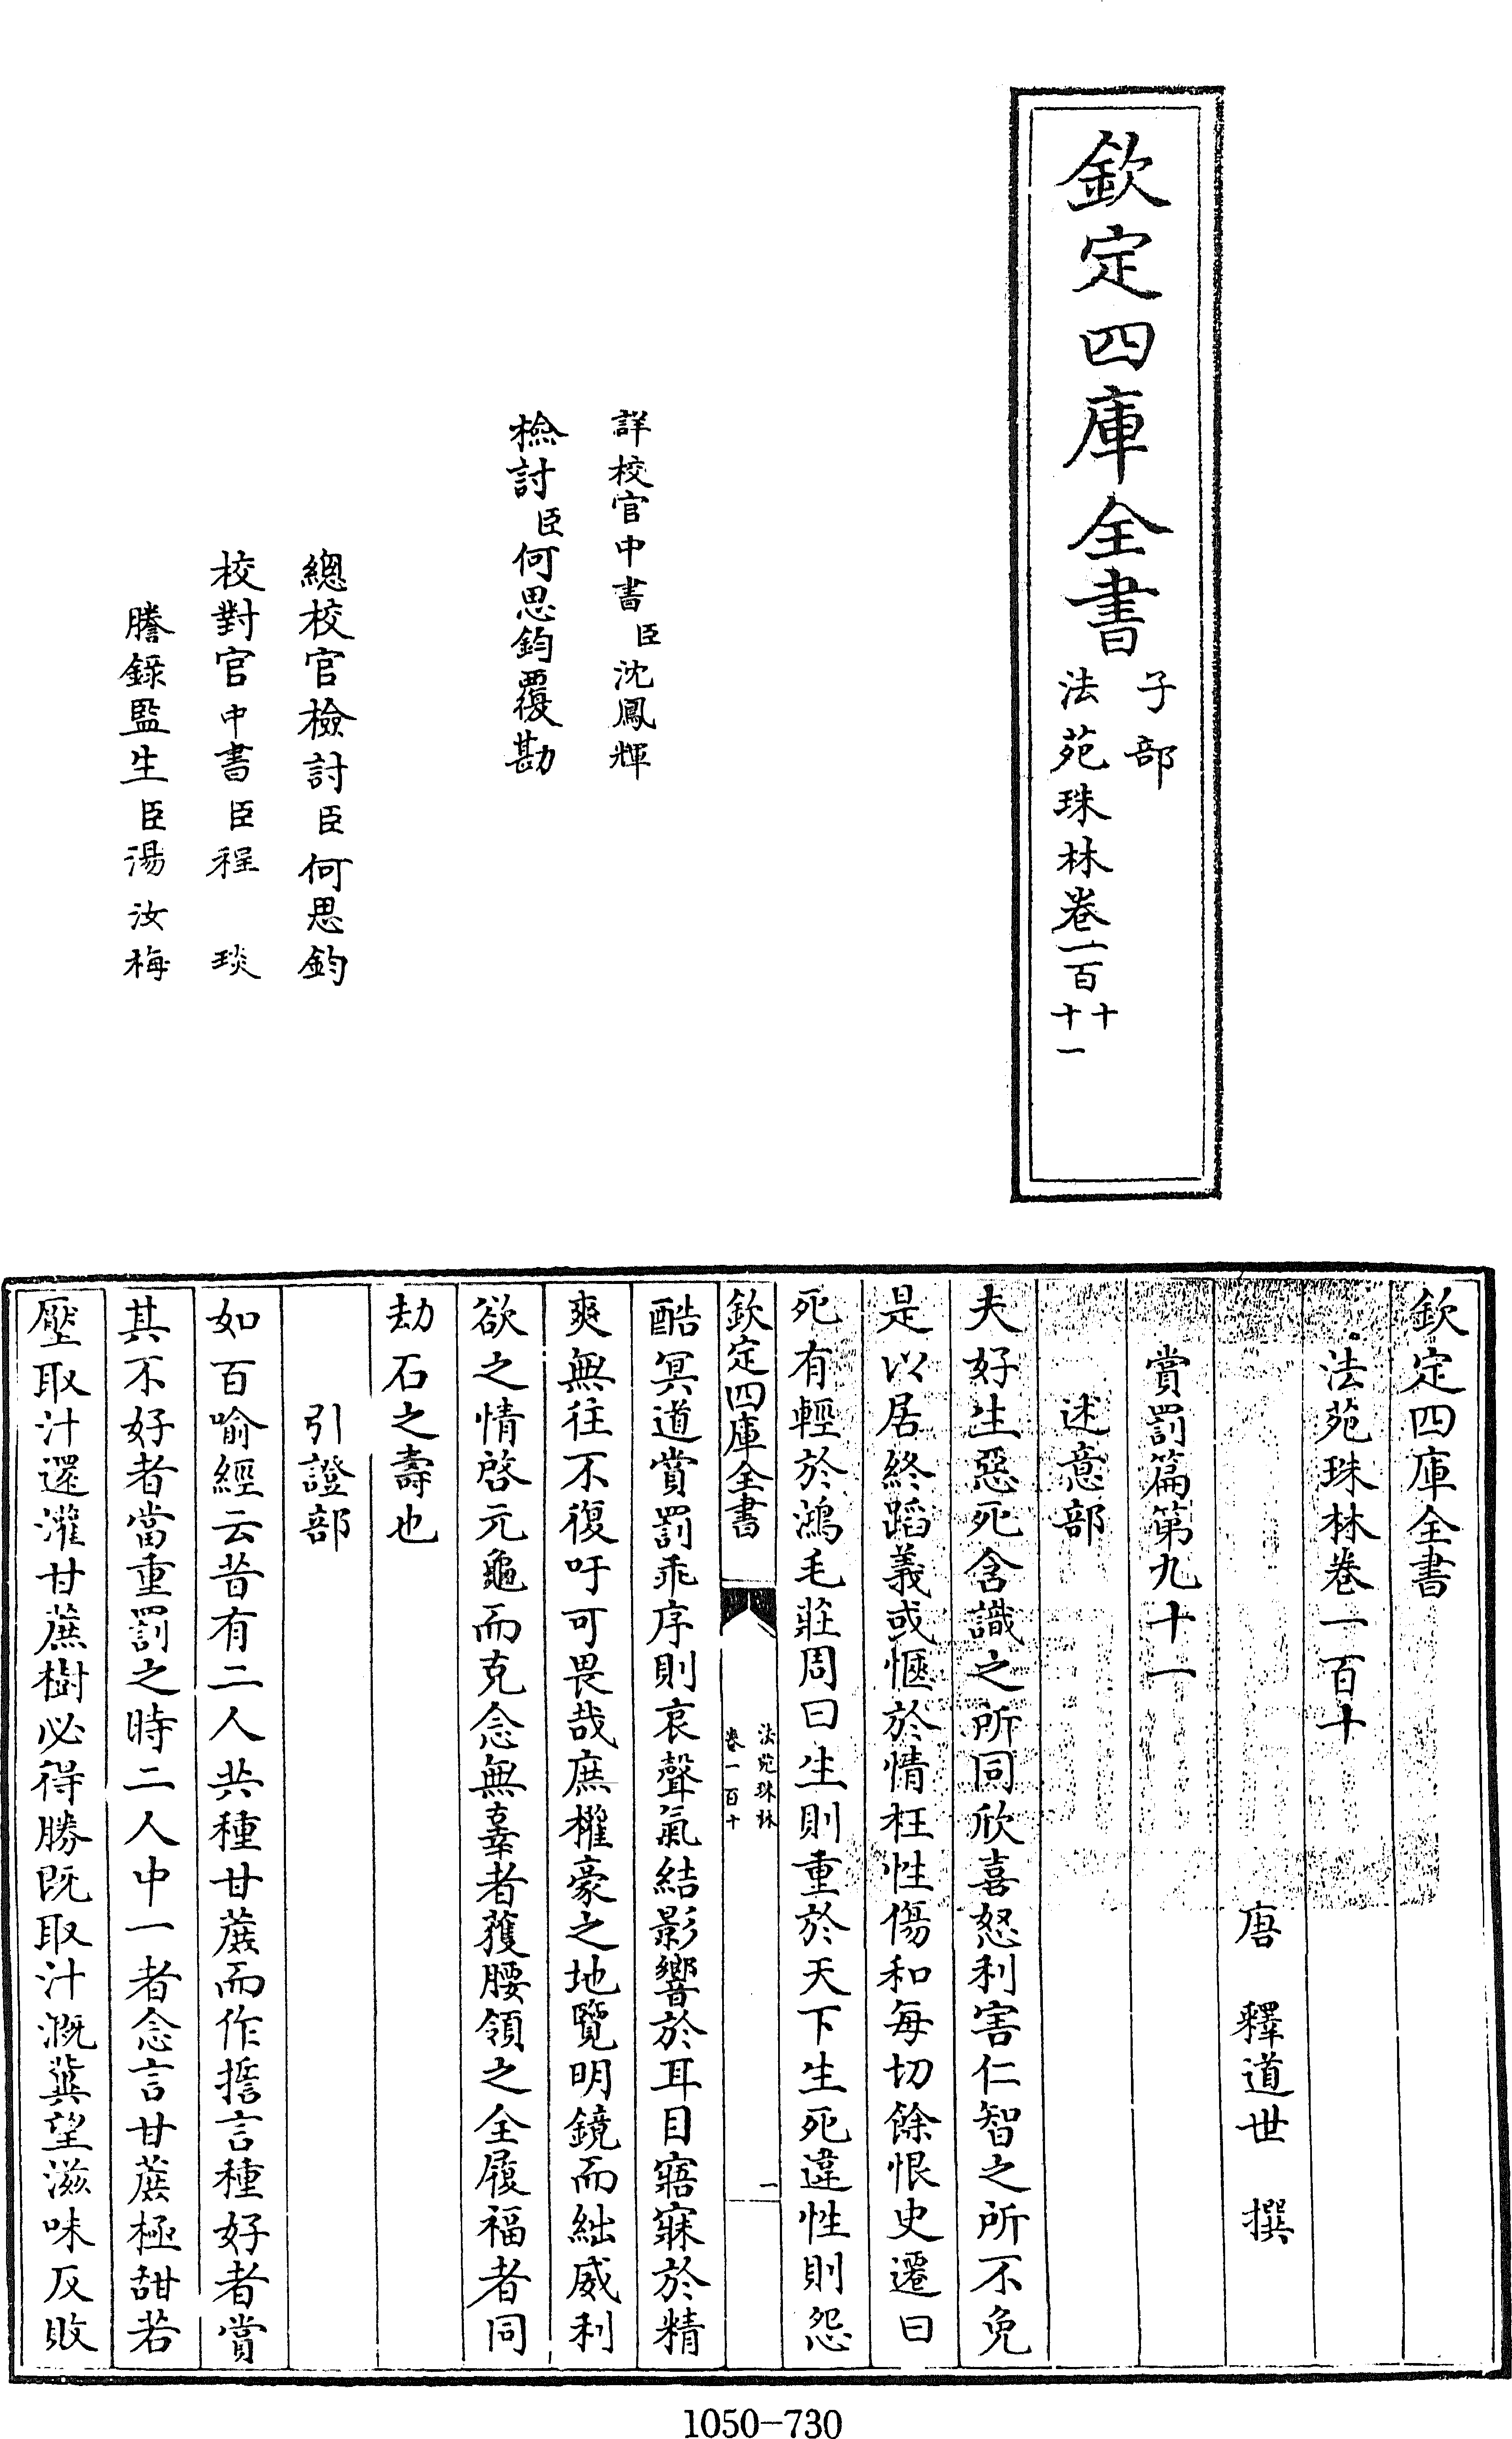 欽定四庫全書
子部
法苑珠林卷一百十
十一
詳校官中書臣沈鳳輝
檢討臣何思鈞覆勘
總校官檢討臣何思鈞
校對官中書臣程琰
謄錄監生臣湯汝梅
欽定四庫全書
法苑珠林卷一百十
唐 釋道世 撰
賞罰篇第九十一
述意部
夫好生惡死含識之所同欣喜怒利害仁智之所不免
是以居終蹈義或愜於情枉性傷和每切餘恨史遷曰
死有輕於鴻毛莊周曰生則重於天下生死違性則怨
欽定四庫全書
法苑珠林
卷一百十
一
酷冥道賞罰乖序則哀聲氣結影響於耳目寤寐於精
爽無往不復吁可畏哉庶權豪之地覽明鏡而絀威利
欲之情啓元龜而克念無辜者獲腰領之全履福者同
劫石之壽也
引證部
如百喻經云昔有二人共種甘蔗而作誓言種好者賞
其不好者當重罰之時二人中一者念言甘蔗極甜若
壓取汁還灌甘蔗樹必得勝既取汁溉冀望滋味反敗
1050-730